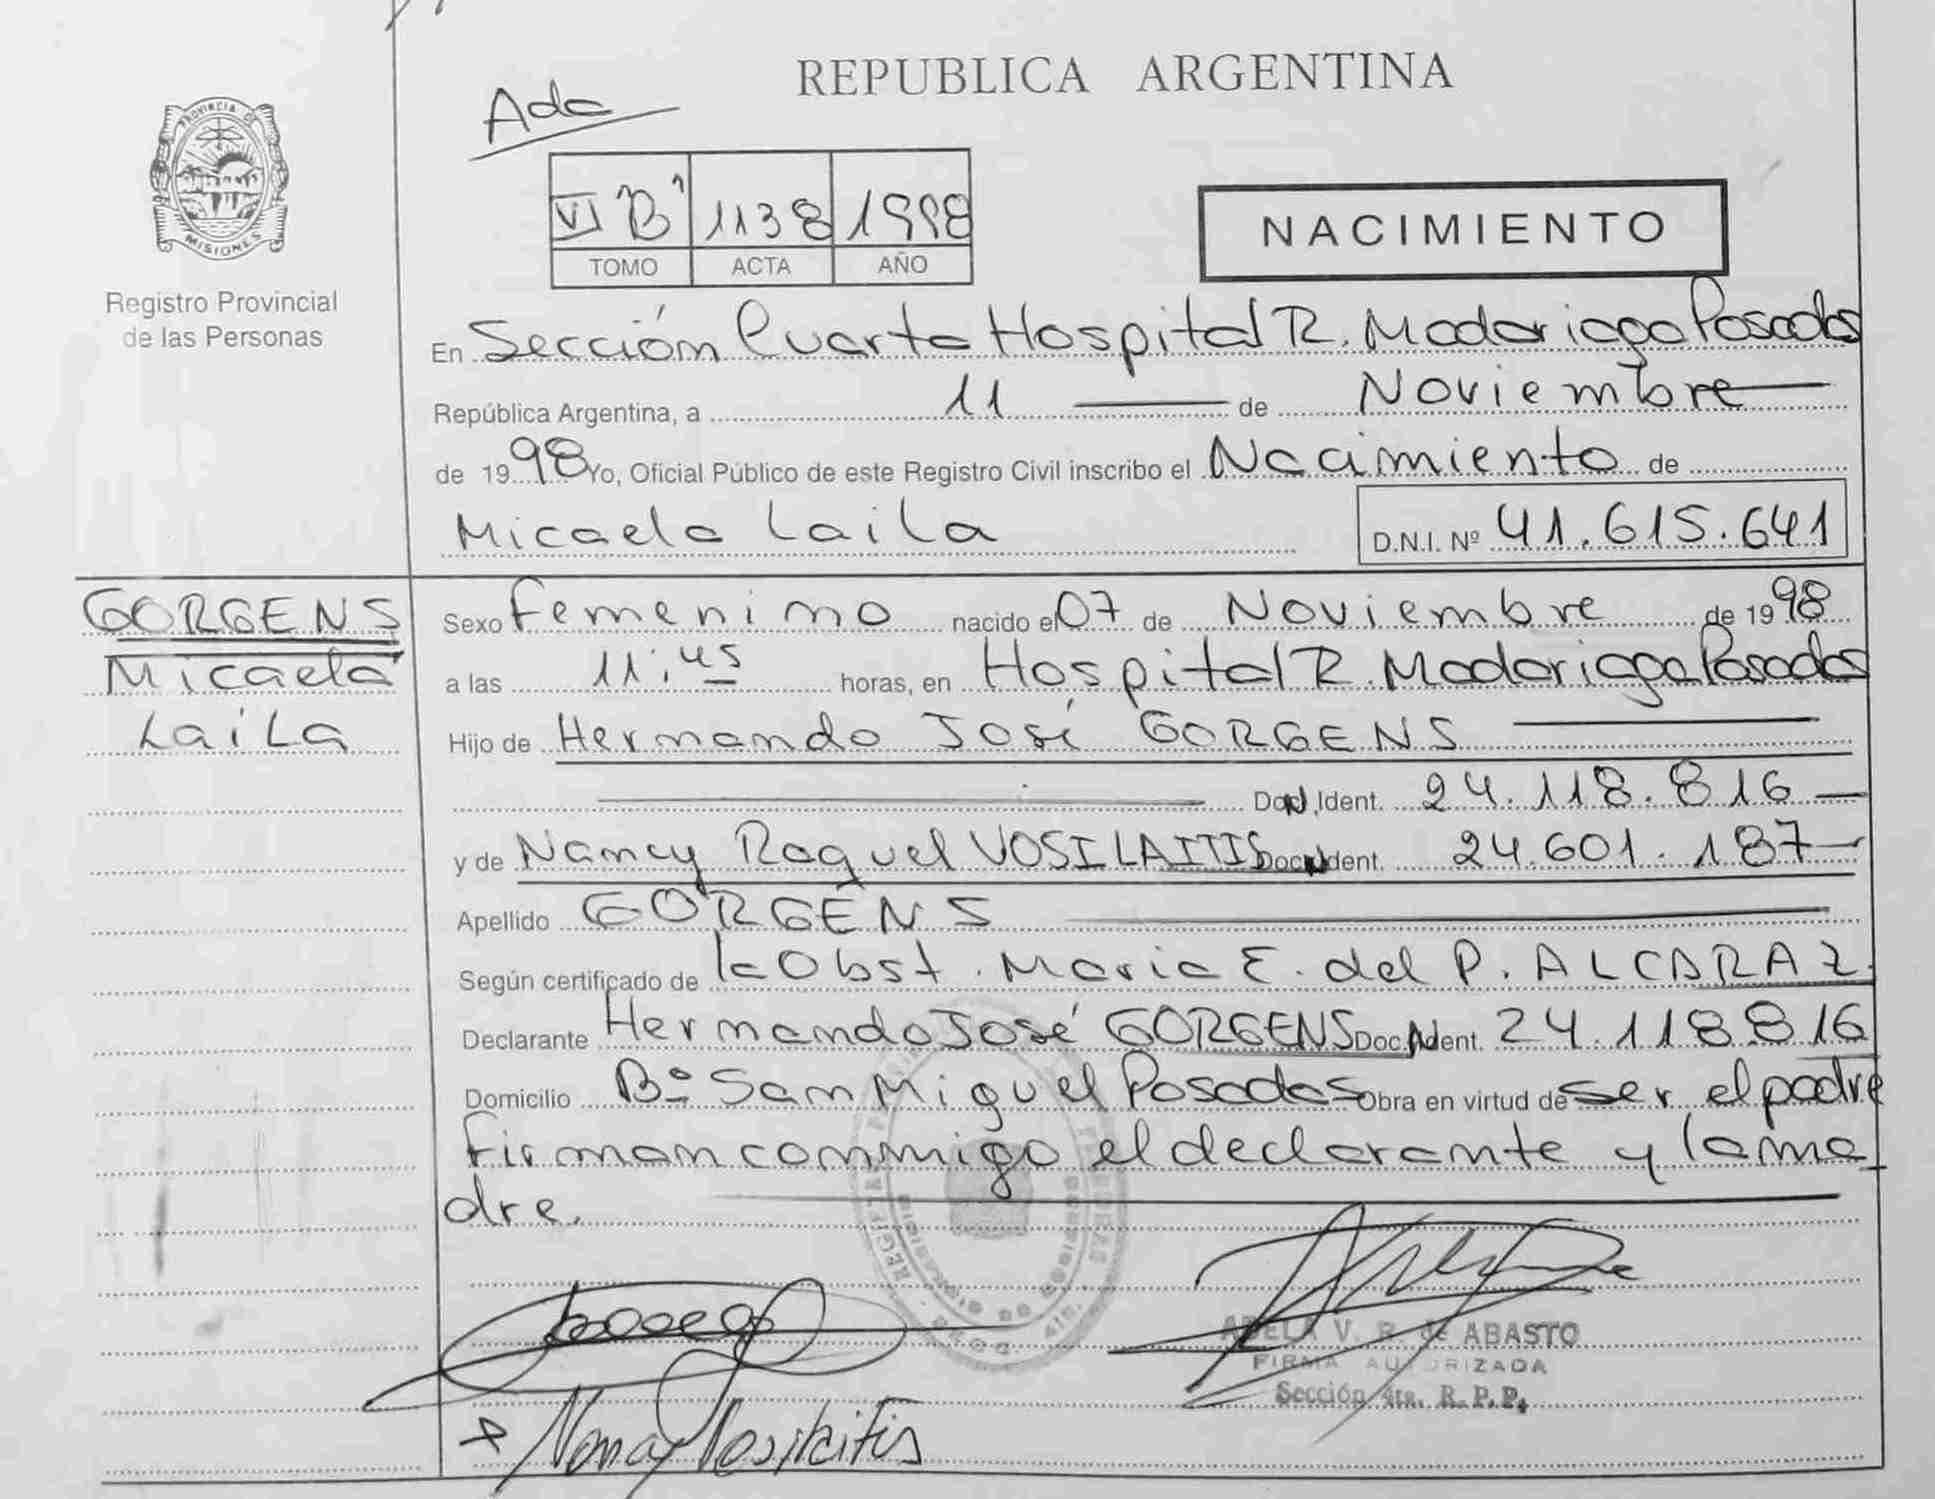 REPUBLICA ARGENTINA
Ada
PROVINCIA DE
MISIONES
Registro Provincial
de las Personas
VI "B" 1138 1998
TOMO ACTA AÑO
NACIMIENTO
En Sección Cuarta Hospital R. Madariaga Posadas
República Argentina, a 11 de Noviembre
de 1998 Yo, Oficial Público de este Registro Civil inscribo el Nacimiento de
Micaela Laila D.N.I. Nº 41.615.641
GORGENS
Micaela
Laila
Sexo Femenino nacido el 07 de Noviembre de 1998
a las 11:45 horas, en Hospital R. Madariaga Posadas
Hijo de Hernando José GORGENS
Doc. Ident. 24.118.816
y de Nancy Raquel VOSILAITIS Doc. Ident. 24.601.187
Apellido GORGENS
Según certificado de la Obst. Maria E. del P. ALCARAZ.
Declarante Hernando José GORGENS Doc. Ident. 24.118.816
Domicilio Bº San Miguel Posadas Obra en virtud de ser el padre
Firman conmigo el declarante y la ma
dre.
ADELA V. R. de ABASTO
FIRMA AUTORIZADA
Sección 4ta. R. P. P.
Nancy Vosilaitis